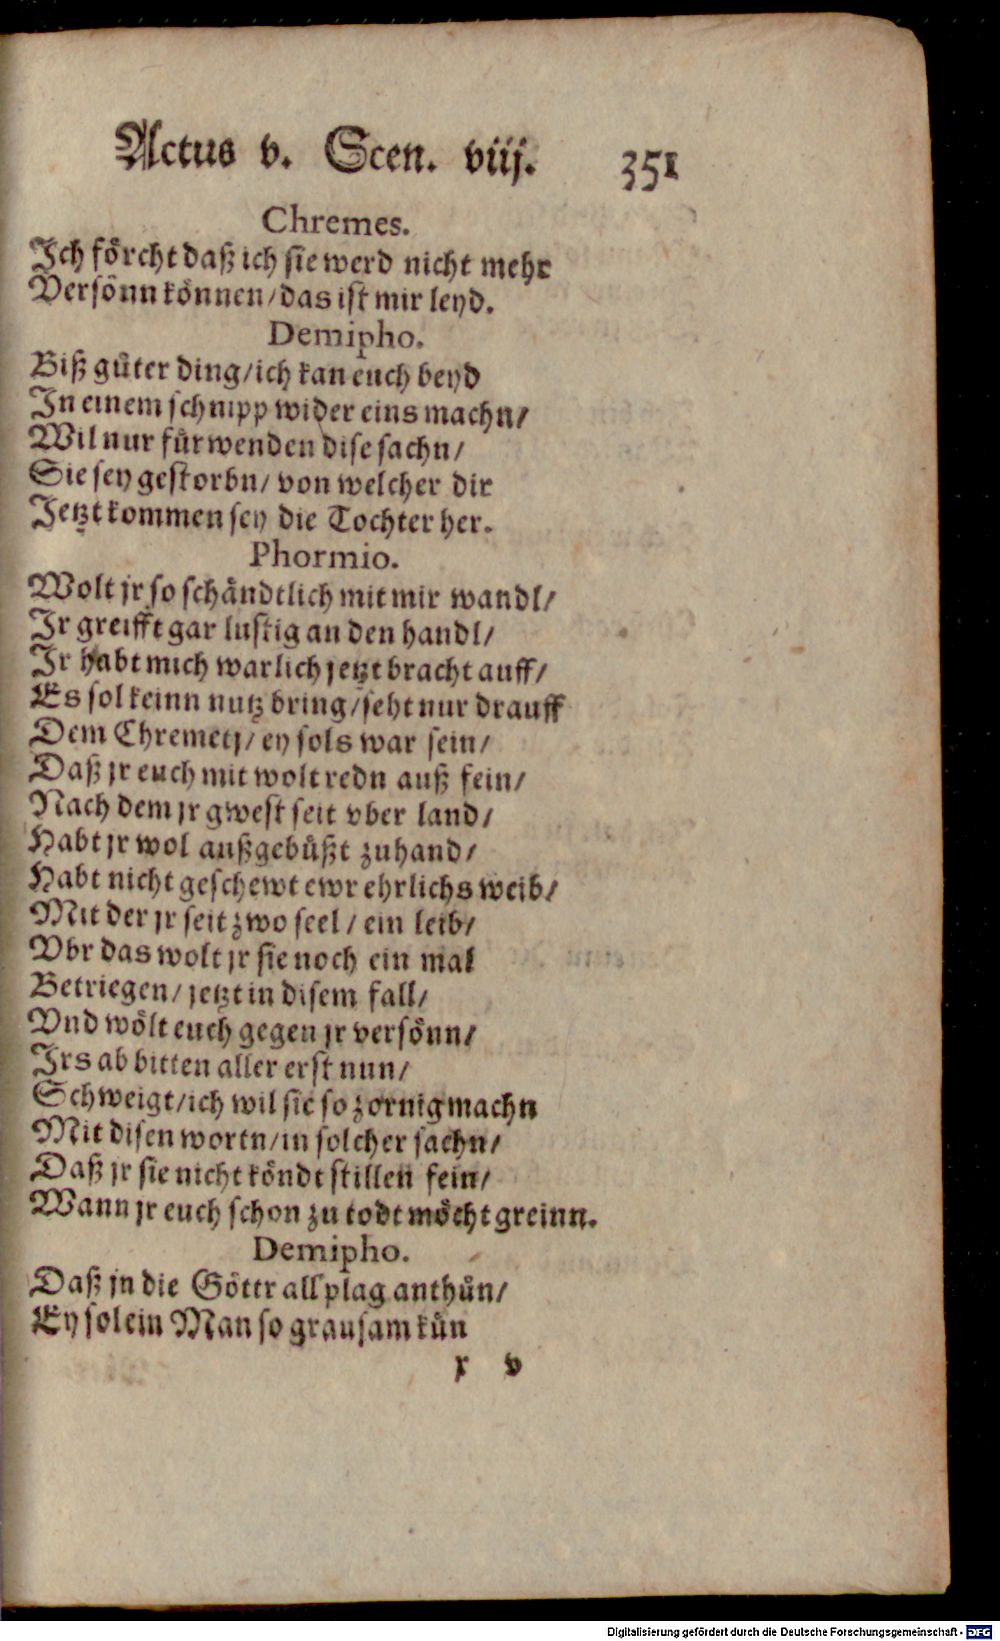 Actus v. Scen. viij. 351
Chremes.
Ich förcht daß ich sie werd nicht mehr
Versönn können/das ist mir leyd.
Demipho.
Biß güter ding/ich kan euch beyd
In einem schnipp wider eins machn/
Wil nur fürwenden dise sachn/
Sie sey gestorbn/ von welcher dir
Jetzt kommen sey die Tochter her.
Phormio.
Wolt jr so schändtlich mit mir wandl/
Ir greifft gar lustig an den handl/
Ir habt mich warlich jetzt bracht auff/
Es sol keinn nutz bring/seht nur drauff
Dem Chremetj/ ey sols war sein/
Daß jr euch mit wolt redn auß fein/
Nach dem jr gwest seit vber land/
Habt jr wol außgebüßt zuhand/
Habt nicht geschewt ewr ehrlichs weib/
Mit der jr seit zwo seel/ ein leib/
Vbr das wolt jr sie noch ein mal
Betriegen/ jetzt in disem fall/
Vnd wölt euch gegen jr versönn/
Irs ab bitten aller erst nun/
Schweigt/ich wil sie so zornig machn
Mit disen wortn/in solcher sachn/
Daß jr sie nicht köndt stillen fein/
Wann jr euch schon zu todt möcht greinn.
Demipho.
Daß jn die Göttr all plag anthün/
Ey sol ein Man so grausam kün
x v
Digitalisierung gefördert durch die Deutsche Forschungsgemeinschaft - DFG